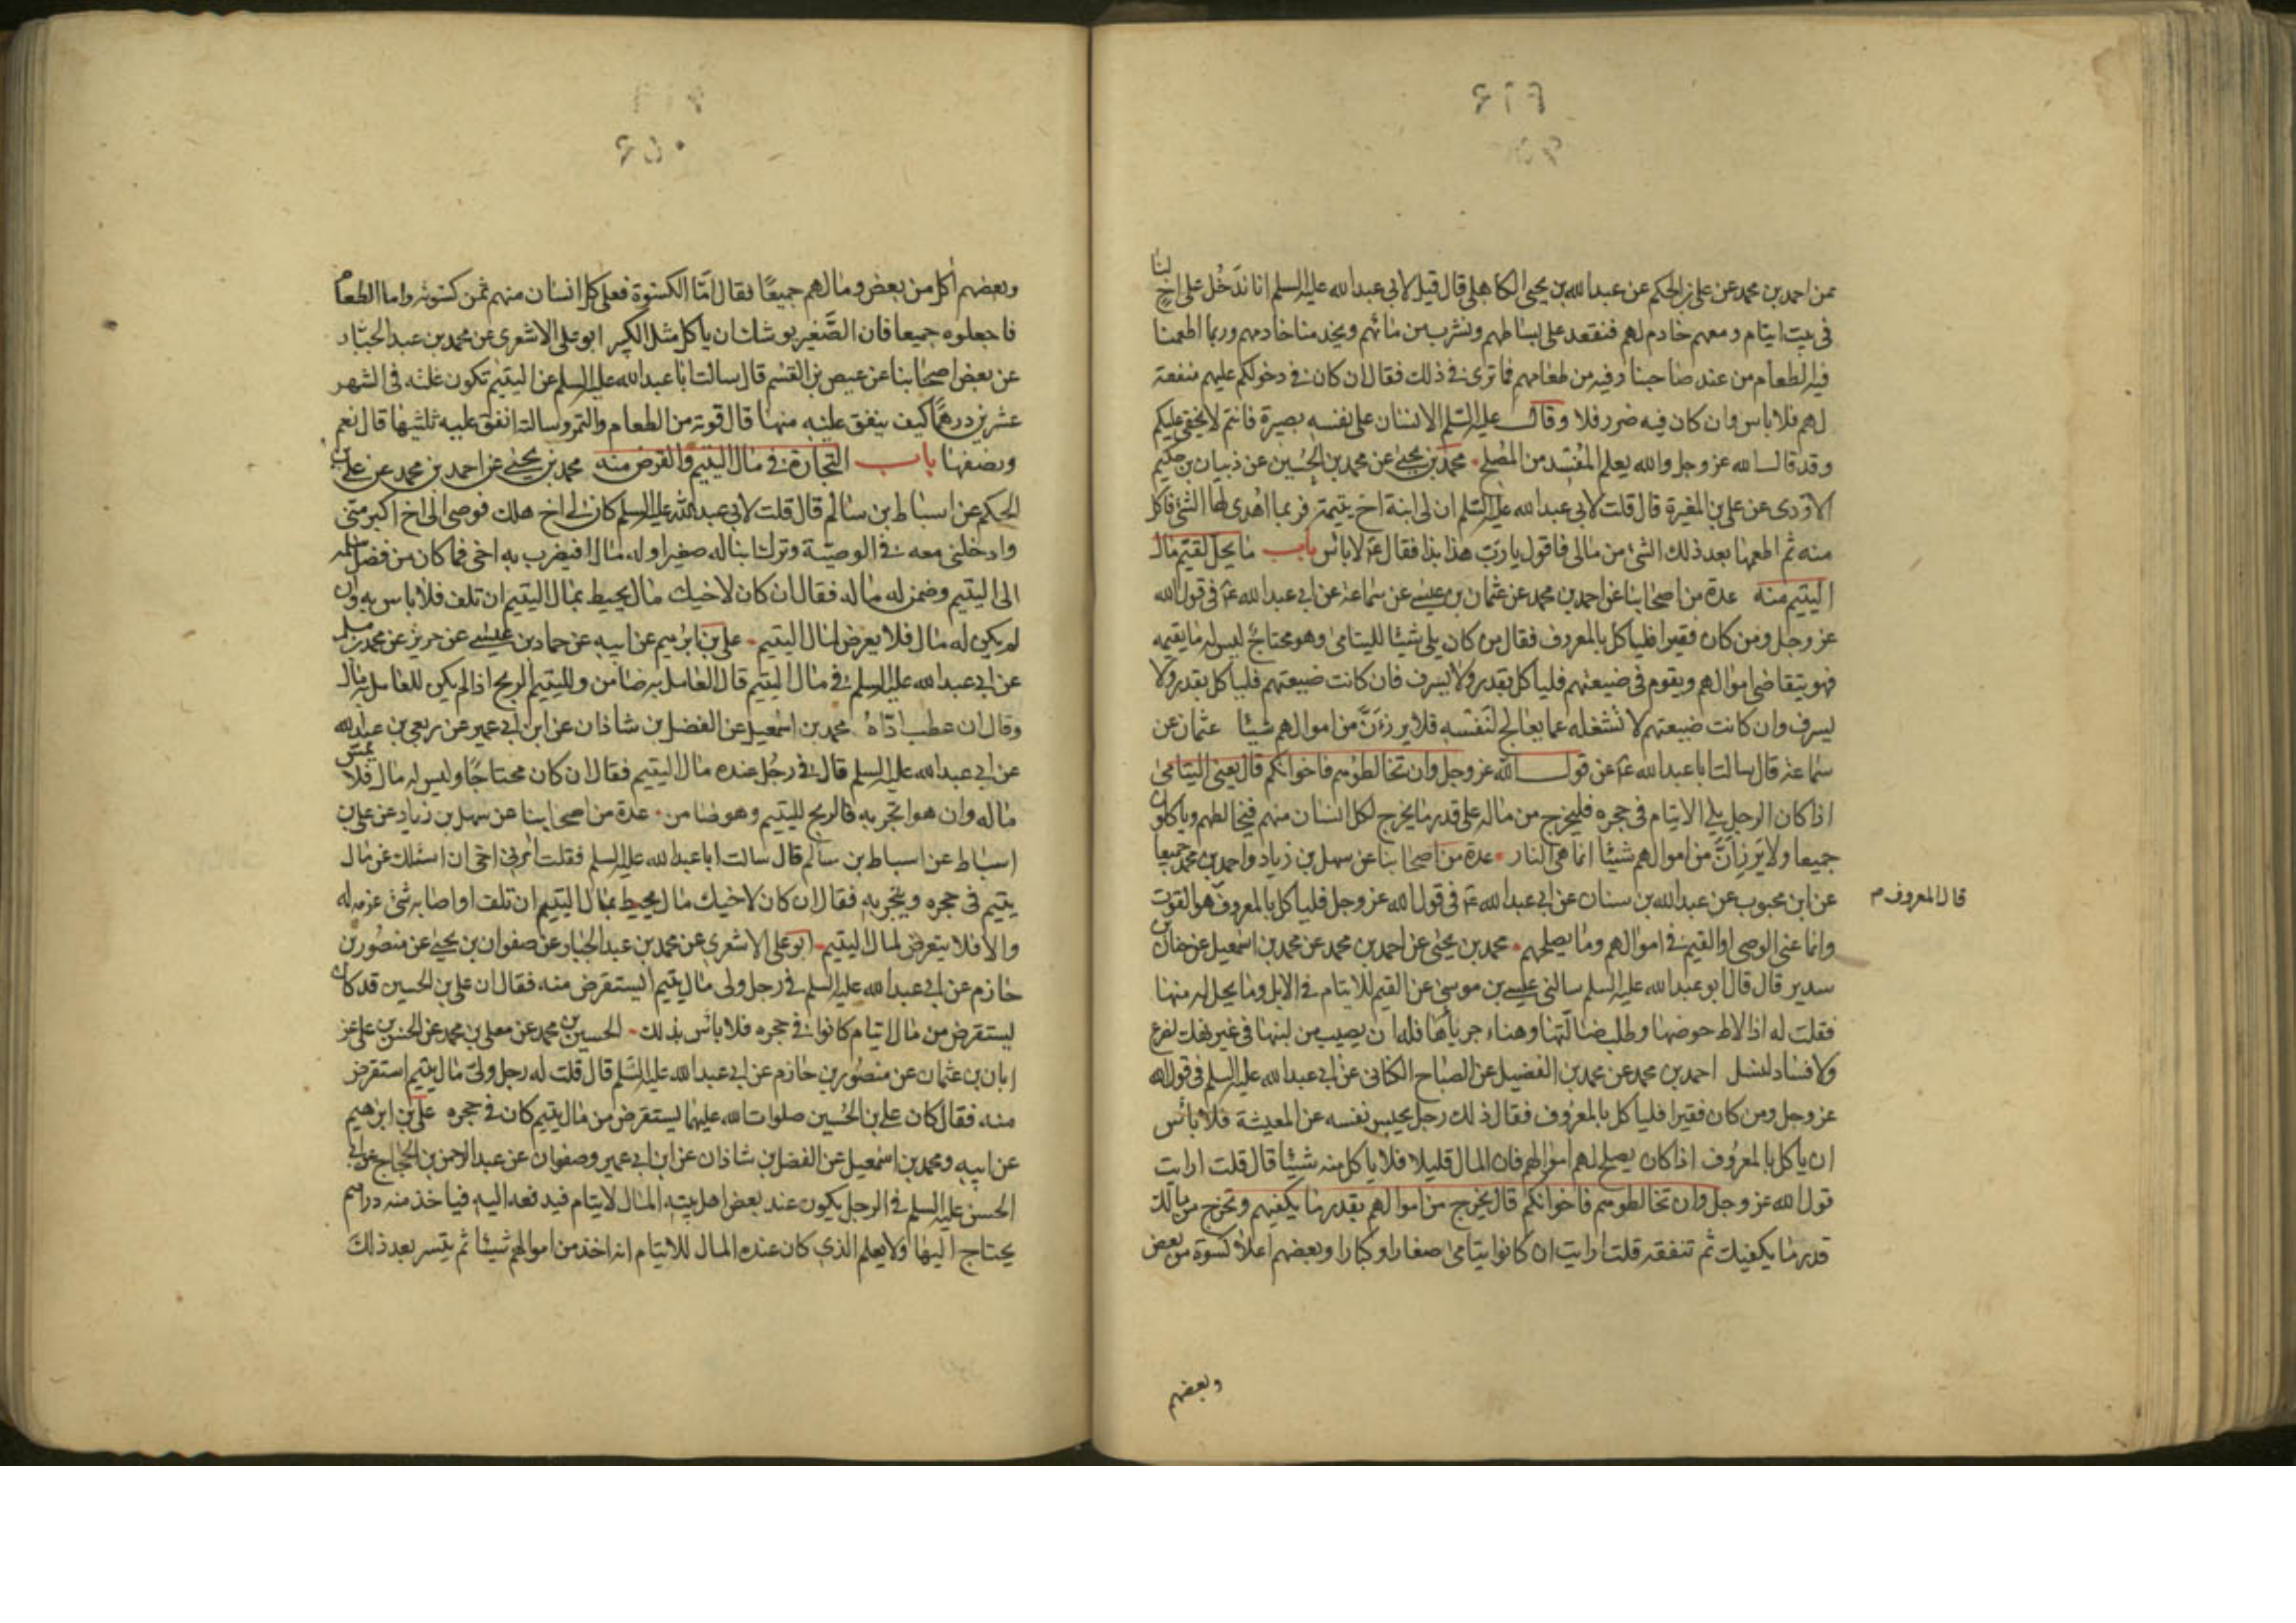 عن احمد بن محمد عن علي بن الحكم عن عبد الله بن يحيى الكاهلي قال قيل لابي عبد الله عليه السلم انا ندخل على اخ لنا
في بيت ايتام ومعهم خادم لهم فنقعد على بساطهم ونشرب من مائهم ويخدمنا خادمهم وربما اطعمنا
فيه الطعام من عند صاحبنا وفيه من طعامهم فما ترى في ذلك فقال ان كان في دخولكم عليهم منفعة
لهم فلا باس وان كان فيه ضرر فلا وقال عليه السلم الانسان على نفسه بصيرة فانتم لا يخفى عليكم
وقد قال الله عز وجل والله يعلم المفسد من المصلح محمد بن يحيى عن محمد بن الحسين عن ذبيان بن حكيم
الاودى عن علي بن المغيرة قال قلت لابي عبد الله عليه السلم ان لي ابنة اخ يتيمة فربما اهدى لها الشئ فاكل
منه ثم اطعمها بعد ذلك الشئ من مالي فاقول يا رب هذا بذا فقال ع لا باس باب ما يحل لقيم مال
اليتيم منه عدة من اصحابنا عن احمد بن محمد عن عثمان بن عيسى عن سماعة عن ابي عبد الله ع في قول الله
عز وجل ومن كان فقيرا فلياكل بالمعروف فقال من كان يلي شيئا لليتامى وهو محتاج ليس له ما يقيمه
فهو يتقاضى اموالهم ويقوم في ضيعتهم فلياكل بقدر ولا يسرف فان كانت ضيعتهم فلياكل بقدر ولا
يسرف وان كانت ضيعتهم لا تشغله عما يعالج لنفسه فلا يرزءن من اموالهم شيئا عثمان عن
سماعة قال سالت ابا عبد الله ع عن قول الله عز وجل وان تخالطوهم فاخوانكم قال يعني اليتامى
اذا كان الرجل يلي الايتام في حجره فليخرج من ماله على قدر ما يخرج لكل انسان منهم فيخالطهم وياكلون
جميعا ولا يرزان من اموالهم شيئا انما هي النار عدة من اصحابنا عن سهل بن زياد واحمد بن محمد جميعا
عن ابن محبوب عن عبد الله بن سنان عن ابي عبد الله ع في قول الله عز وجل فلياكل بالمعروف هو القوت
قال المعروف م
وانما عنى الوصي او القيم في اموالهم وما يصلحهم محمد بن يحيى عن احمد بن محمد عن محمد بن اسمعيل عن حنان بن
سدير قال قال ابو عبد الله عليه السلم سالني عيسى بن موسى عن القيم للايتام في الابل وما يحل له منها
فقلت له اذا لاط حوضها وطلب ضالتها وهناء جرباها فله ان يصيب من لبنها في غير نهك لضرع
ولا فساد لنسل احمد بن محمد عن محمد بن الفضيل عن الصباح الكناني عن ابي عبد الله عليه السلم في قول الله
عز وجل ومن كان فقيرا فلياكل بالمعروف فقال ذلك رجل يحبس نفسه عن المعيشة فلا باس
ان ياكل بالمعروف اذا كان يصلح لهم اموالهم فان المال قليلا فلا ياكل منه شيئا قال قلت ارايت
قول الله عز وجل وان تخالطوهم فاخوانكم قال يخرج من اموالهم بقدر ما يكفيهم وتخرج من مالك
قدر ما يكفيك ثم تنفقه قلت ارايت ان كانوا يتامى صغارا وكبارا وبعضهم اعلا كسوة من بعض
وبعضهم
وبعضهم اكل من بعض ومالهم جميعا فقال اما الكسوة فعلى كل انسان منهم ثمن كسوته واما الطعام
فاجعلوه جميعا فان الصغير يوشك ان ياكل مثل الكبير ابو علي الاشعري عن محمد بن عبد الجبار
عن بعض اصحابنا عن عيص بن القسم قال سالت ابا عبد الله عليه السلم عن اليتيم تكون غلته في الشهر
عشرين درهما كيف ينفق عليه منها قال قوته من الطعام والتمر وسالته انفق عليه ثلثيها قال نعم
ونصفها باب التجارة في مال اليتيم والقرض منه محمد بن يحيى عن احمد بن محمد عن علي بن
الحكم عن اسباط بن سالم قال قلت لابي عبد الله عليه السلم كان لي اخ هلك فوصى الى اخ اكبر مني
وادخلني معه في الوصية وترك ابنا له صغيرا وله مال افيضرب به اخي فما كان من فضل سلمه
الى اليتيم وضمن له ماله فقال ان كان لاخيك مال يحيط بمال اليتيم ان تلف فلا باس به وان
لم يكن له مال فلا يعرض لمال اليتيم علي بن ابرهيم عن ابيه عن حماد بن عيسى عن حريز عن محمد بن مسلم
عن ابي عبد الله عليه السلم في مال اليتيم قال العامل به ضامن ولليتيم الربح اذا لم يكن للعامل به مال
وقال ان عطب اداه محمد بن اسمعيل عن الفضل بن شاذان عن ابن ابي عمير عن ربعي بن عبد الله
عن ابي عبد الله عليه السلم قال في رجل عنده مال اليتيم فقال ان كان محتاجا وليس له مال فلا يمس
ماله وان هو اتجر به فالربح لليتيم وهو ضامن عدة من اصحابنا عن سهل بن زياد عن علي بن
اسباط عن اسباط بن سالم قال سالت ابا عبد الله عليه السلم فقلت امرني اخي ان اسئلك عن مال
يتيم في حجره ويتجر به فقال ان كان لاخيك مال يحيط بمال اليتيم ان تلف او اصابه شئ غرمه له
والا فلا يتعرض لمال اليتيم ابو علي الاشعري عن محمد بن عبد الجبار عن صفوان بن يحيى عن منصور بن
حازم عن ابي عبد الله عليه السلم في رجل ولى مال يتيم ايستقرض منه فقال ان علي بن الحسين قد كان
يستقرض من مال ايتام كانوا في حجره فلا باس بذلك الحسين بن محمد عن معلى بن محمد عن الحسن بن علي عن
ابان بن عثمان عن منصور بن حازم عن ابي عبد الله عليه السلم قال قلت له رجل ولي مال يتيم استقرض
منه فقال كان علي بن الحسين صلوات الله عليهما يستقرض من مال يتيم كان في حجره علي بن ابرهيم
عن ابيه ومحمد بن اسمعيل عن الفضل بن شاذان عن ابن ابي عمير وصفوان عن عبد الرحمن بن الحجاج عن ابي
الحسن عليه السلم في الرجل يكون عند بعض اهل بيته المال لايتام فيدفعه اليه فياخذ منه دراهم
يحتاج اليها ولا يعلم الذي كان عنده المال للايتام انه اخذ من اموالهم شيئا ثم يتسر بعد ذلك